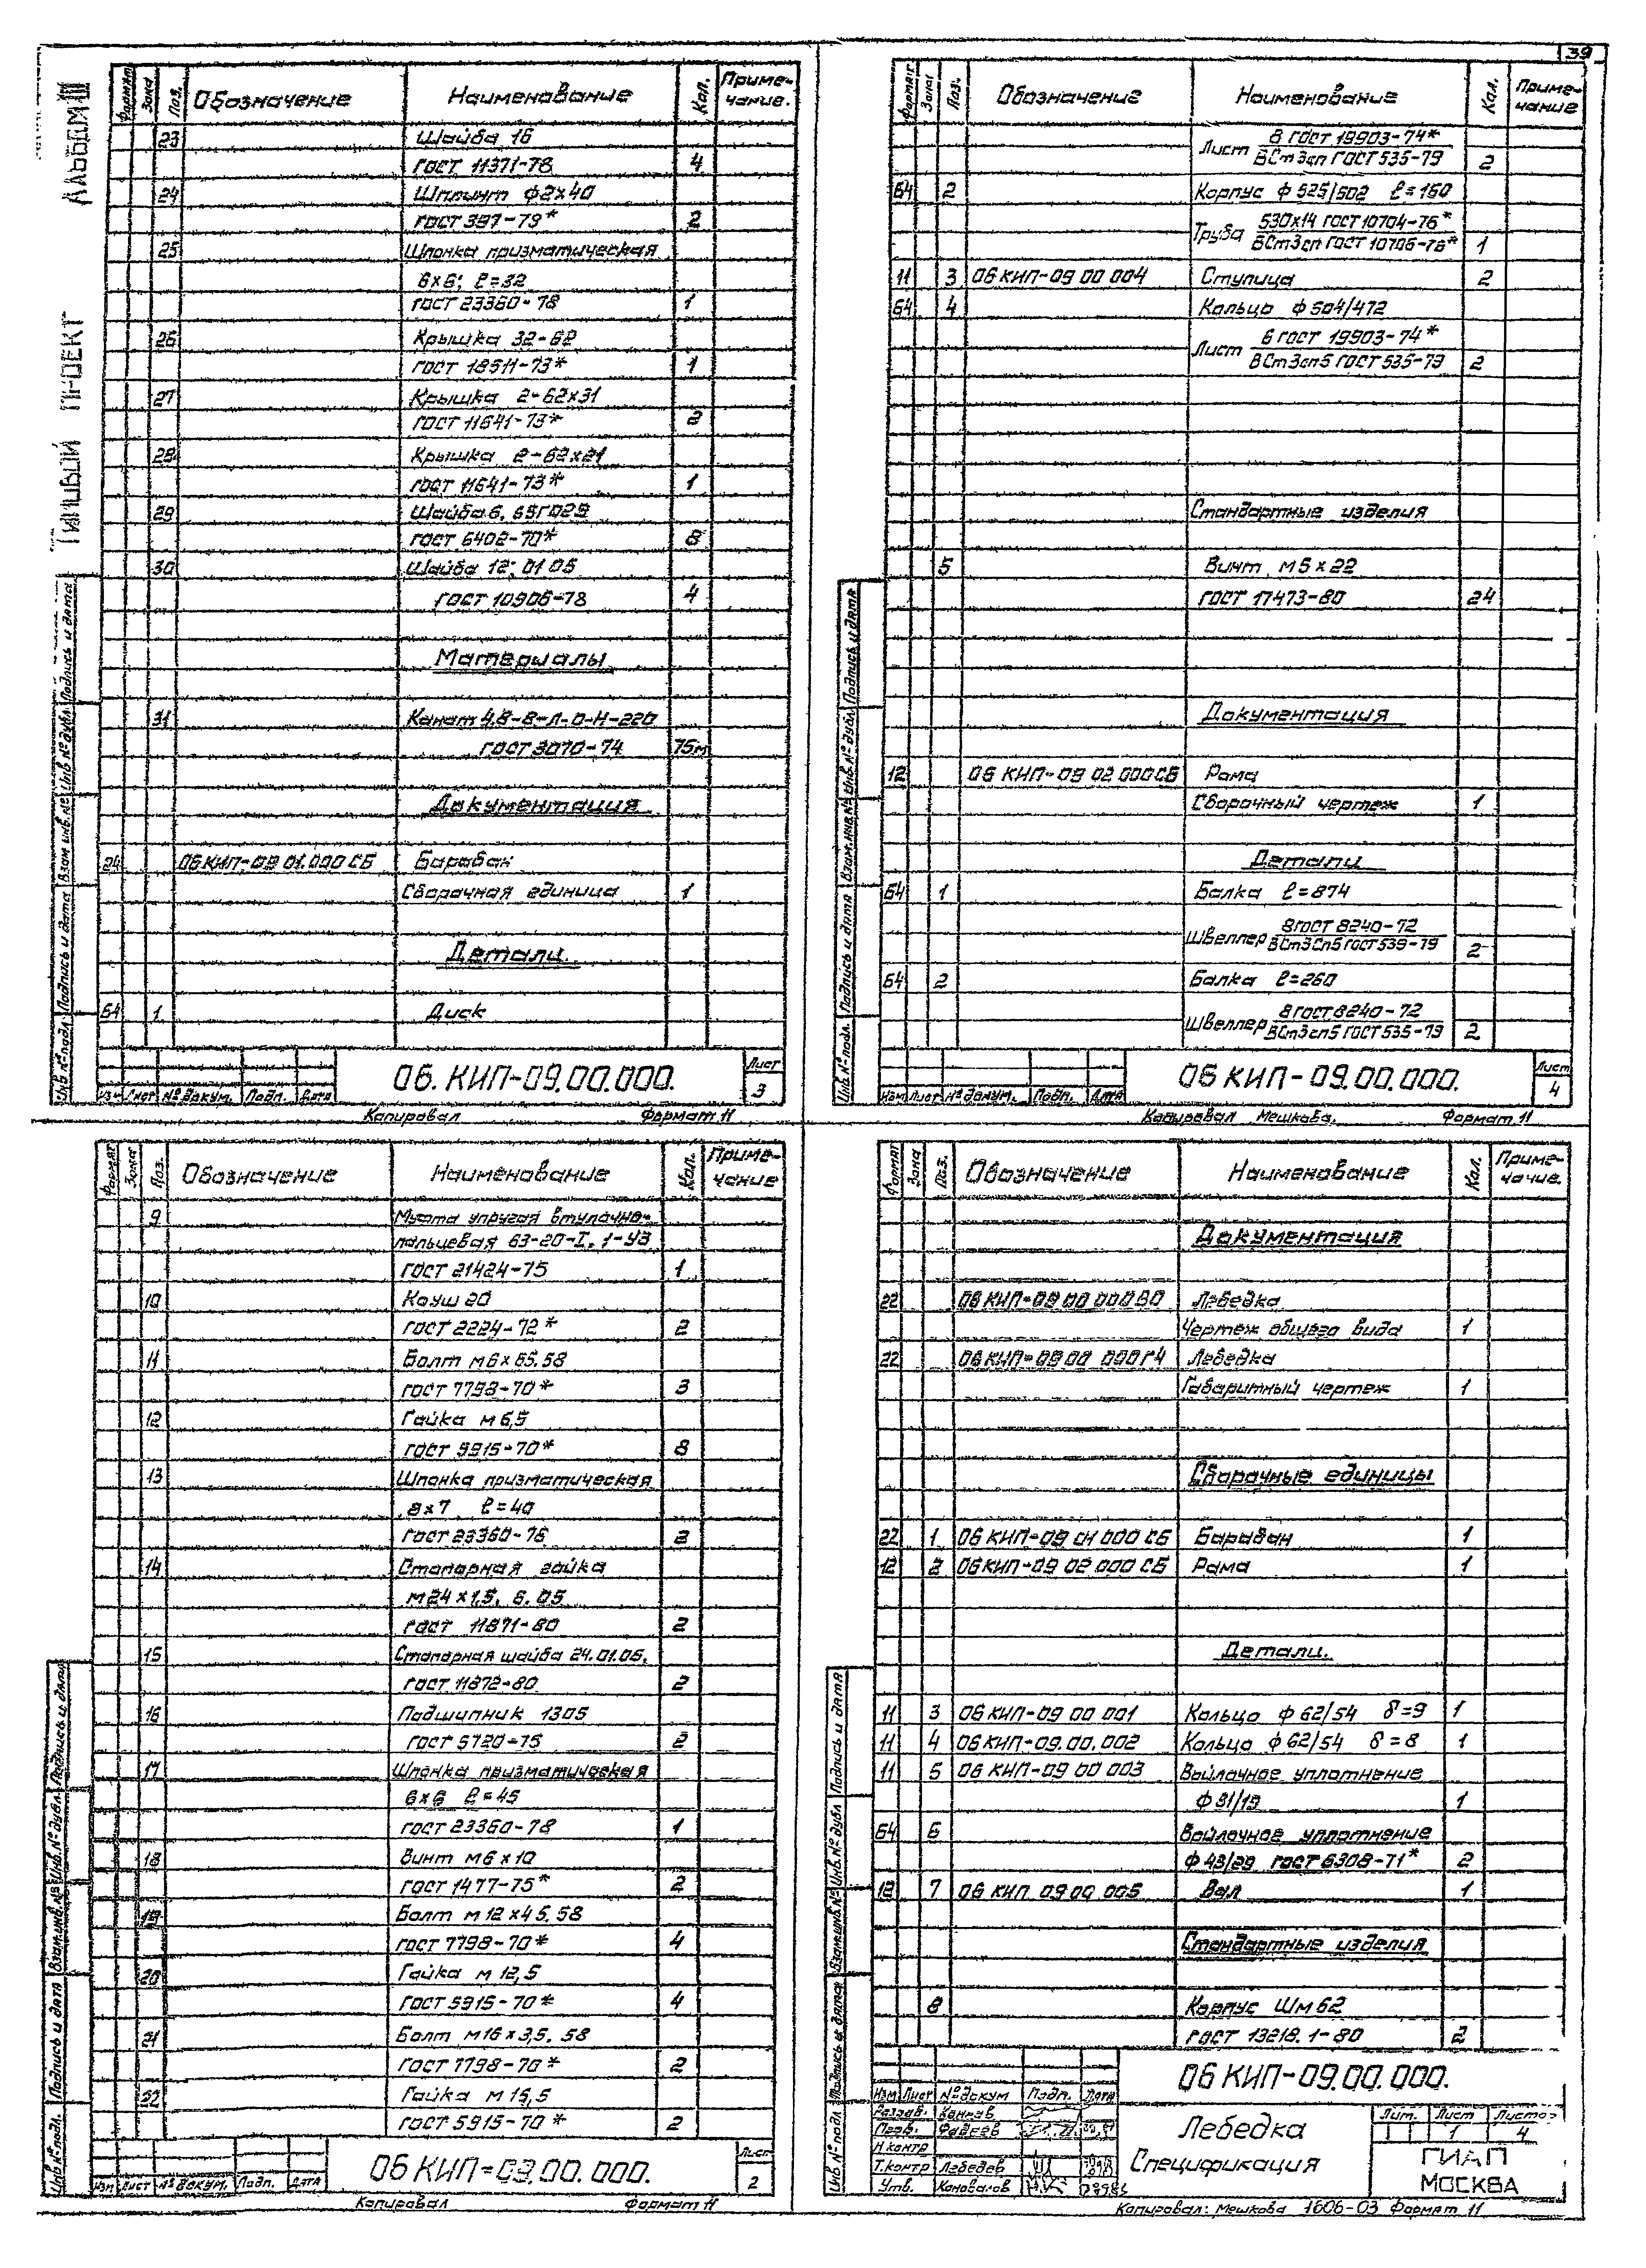 39
АЛЬБОМ III
ТИПОВЫЙ ПРОЕКТ
Формат Зона Поз. Обозначение Наименование Кол. Приме-
чание.
23 Шайба 16
ГОСТ 11371-78 4
24 Шплинт ф2х40
ГОСТ 397-79* 2
25 Шпонка призматическая
6х6; ℓ=32
ГОСТ 23360-78 1
26 Крышка 32-62
ГОСТ 18511-73* 1
27 Крышка 2-62х31
ГОСТ 11641-73* 2
28 Крышка 2-62х21
ГОСТ 11641-73* 1
29 Шайба 6, 65Г029
ГОСТ 6402-70* 8
30 Шайба 12; 01 05
ГОСТ 10906-78 4
Материалы
31 Канат 4,8-В-Л-О-Н-220
ГОСТ 3070-74 75м
Документация
24 06 КИП-09 01.000 СБ Барабан
Сборочная единица 1
Детали.
Б4 1 Диск
06. КИП-09.00.000.
Лист
3
Изм Лист № докум. Подп. Дата
Копировал Формат 11
Инв № подл. Подпись и дата Взам инв. № Инв № дубл. Подпись и дата
Формат Зона Поз. Обозначение Наименование Кол. Приме-
чание
Лист 8 ГОСТ 19903-74*
ВСт3сп ГОСТ 535-79 2
Б4 2 Корпус ф 525/502 ℓ=160
Труба 530х14 ГОСТ 10704-76*
ВСт3сп ГОСТ 10706-76* 1
11 3 06 КИП-09 00 004 Ступица 2
Б4 4 Кольцо ф 504/472
Лист 6 ГОСТ 19903-74*
ВСт3сп5 ГОСТ 535-79 2
Стандартные изделия
5 Винт м5х22
ГОСТ 17473-80 24
Документация
12 06 КИП-09 02 000 СБ Рама
Сборочный чертеж 1
Детали
Б4 1 Балка ℓ=874
Швеллер 8 ГОСТ 8240-72
ВСт3сп5 ГОСТ 539-79 2
Б4 2 Балка ℓ=260
Швеллер 8 ГОСТ 8240-72
ВСт3сп5 ГОСТ 535-79 2
06 КИП-09.00.000.
Лист
4
Изм Лист № докум. Подп. Дата
Копировал Мешкова. Формат 11
Инв № подл. Подпись и дата Взам. инв. № Инв. № дубл. Подпись и дата
Формат Зона Поз. Обозначение Наименование Кол. Приме-
чание
9 Муфта упругая втулочно-
пальцевая 63-20-I. 1-У3
ГОСТ 21424-75 1
10 Коуш 20
ГОСТ 2224-72* 2
11 Болт м6х65.58
ГОСТ 7798-70* 3
12 Гайка м 6,5
ГОСТ 5915-70* 8
13 Шпонка призматическая
8х7 ℓ=40
ГОСТ 23360-78 2
14 Стопорная гайка
м24х1,5. 6. 05
ГОСТ 11871-80 2
15 Стопорная шайба 24.01.05.
ГОСТ 11872-80 2
16 Подшипник 1305
ГОСТ 5720-75 2
17 Шпонка призматическая
6х6 ℓ=45
ГОСТ 23360-78 1
18 Винт м6х10
ГОСТ 1477-75* 2
19 Болт м 12х45.58
ГОСТ 7798-70* 4
20 Гайка м 12,5
ГОСТ 5915-70* 4
21 Болт м16х3,5. 58
ГОСТ 7798-70* 2
22 Гайка м 15,5
ГОСТ 5915-70* 2
06 КИП-09.00.000.
Лист
2
Изм Лист № докум. Подп. Дата
Копировал Формат 11
Инв № подл. Подпись и дата Взам. инв. № Инв. № дубл. Подпись и дата
Формат Зона Поз. Обозначение Наименование Кол. Приме-
чание.
Документация
22 06 КИП-09 00 000 ВО Лебедка
Чертеж общего вида 1
22 06 КИП-09 00 000 ГЧ Лебедка
Габаритный чертеж 1
Сборочные единицы
22 1 06 КИП-09 01 000 СБ Барабан 1
12 2 06 КИП-09 02 000 СБ Рама 1
Детали.
11 3 06 КИП-09 00 001 Кольцо ф 62/54 δ=9 1
11 4 06 КИП-09.00.002 Кольцо ф 62/54 δ=8 1
11 5 06 КИП-09 00 003 Войлочное уплотнение
ф 31/19 1
Б4 6 Войлочное уплотнение
ф 43/29 ГОСТ 6308-71* 2
12 7 06 КИП 09 00 005 Вал 1
Стандартные изделия
8 Корпус ШМ 62
ГОСТ 13218.1-80 2
06 КИП-09.00.000.
Изм Лист № докум Подп. Дата
Разраб.
Пров. Фадеев
Н контр
Т. контр Лебедев
Утв. Коновалов
Лебедка
Спецификация
Лит. Лист Листов
1 4
ГИАП
МОСКВА
Копировал: Мешкова 1606-03 Формат 11
Инв № подл Подпись и дата Взам. инв. № Инв № дубл Подпись и дата